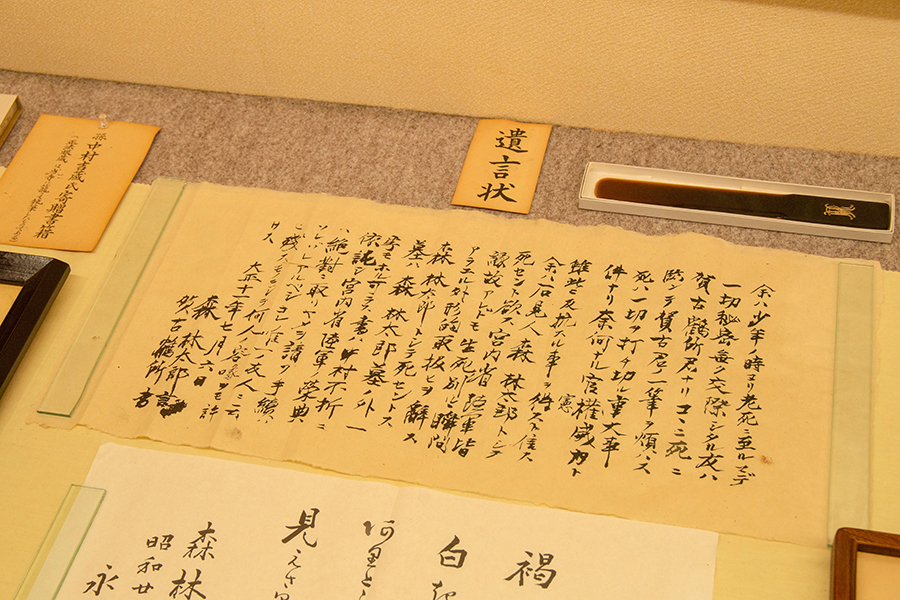 遺言状
余ハ少年ノ時ヨリ老死ニ至ルマデ
一切秘密無ク交際シタル友ハ
賀古鶴所君ナリコヽニ死ニ
臨ンテ賀古君ノ一筆ヲ煩ハス
死ハ一切ヲ打チ切ル重大事
件ナリ奈何ナル官憲威力ト
雖此ニ反抗スル事ヲ得スト信ス
余ハ石見人森林太郎トシテ
死セント欲ス宮内省陸軍皆
縁故アレドモ生死別ルヽ瞬間
アラユル外形的取扱ヒヲ辭ス
森林太郎トシテ死セントス
墓ハ森林太郎墓ノ外一
字モホル可ラス書ハ中村不折ニ
依託シ宮内省陸軍ノ榮典
ハ絶對ニ取リヤメヲ請フ手續ハ
ソレゾレアルベシコレ唯一ノ友人ニ云
ヒ殘スモノニシテ何人ノ容喙ヲモ許
サス
大正十一年七月六日
森林太郎言
賀古鶴所書
褐
白
見えさ
森林
昭和廿
永
氏寄贈書籍